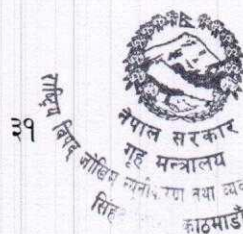 ३१
नेपाल सरकार
गृह मन्त्रालय
राष्ट्रिय विपद् जोखिम न्यूनीकरण तथा
काठमाडौं